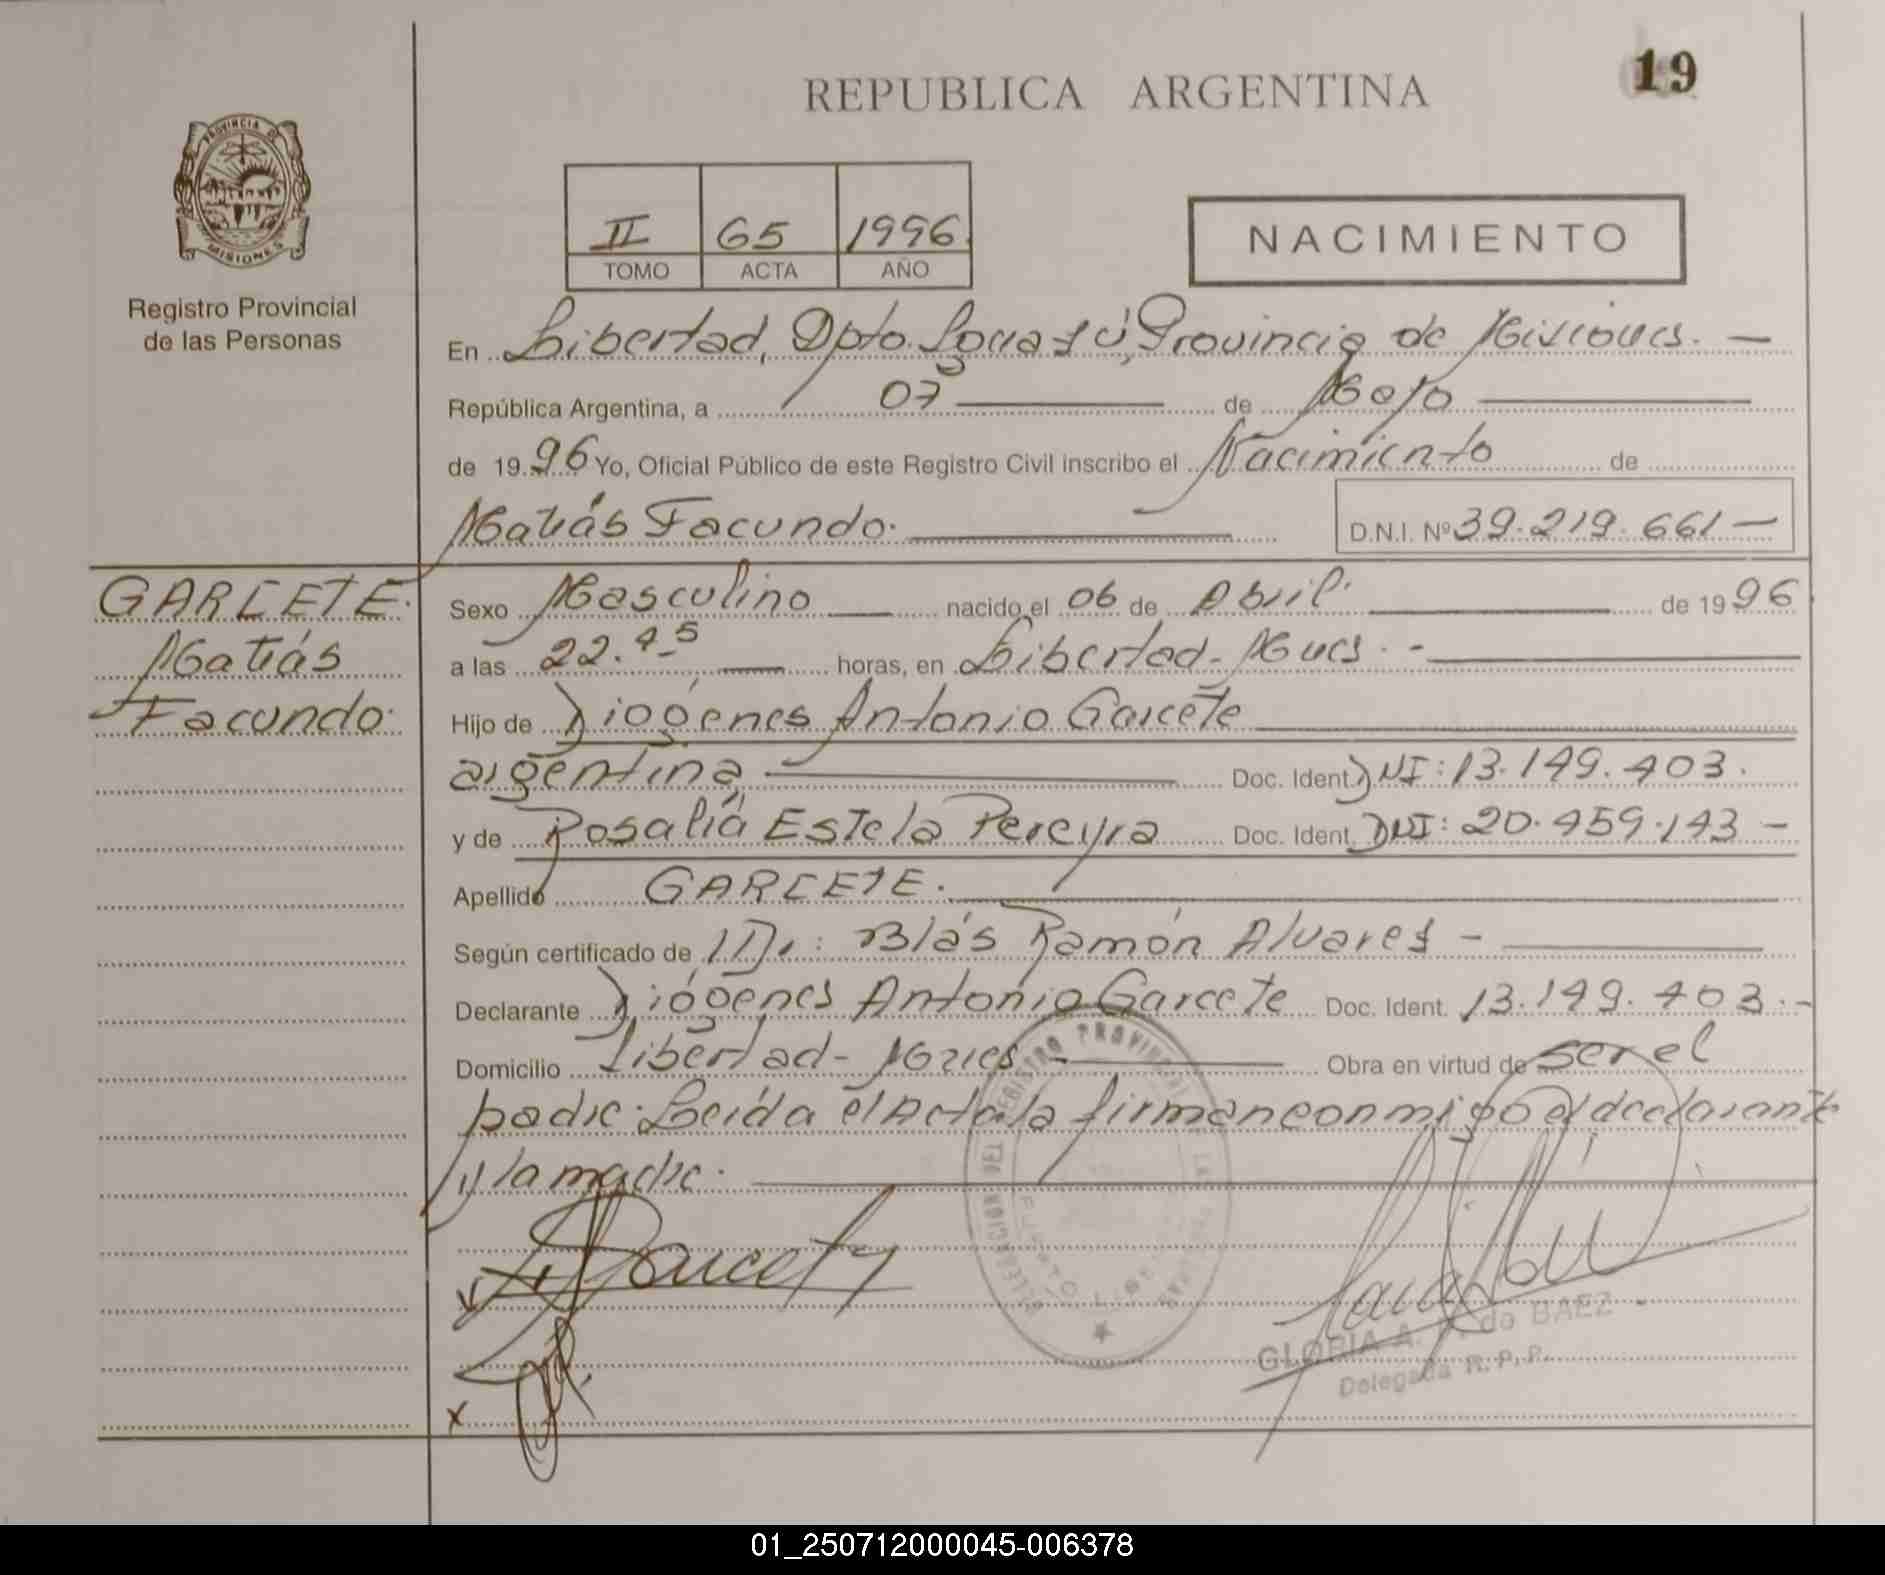 19
REPUBLICA ARGENTINA
PROVINCIA DE
MISIONES
Registro Provincial
de las Personas
II 65 1996
TOMO ACTA AÑO
NACIMIENTO
En Libertad, Dpto. Iguazú, Provincia de Misiones. —
República Argentina, a 07 de Mayo
de 1996 Yo, Oficial Público de este Registro Civil inscribo el Nacimiento de
Matías Facundo. D.N.I. Nº 39.219.661 —
GARCETE.
Matías
Facundo.
Sexo Masculino nacido el 06 de Abril. de 1996
a las 22.45 horas, en Libertad - Mnes. -
Hijo de Diógenes Antonio Garcete
argentina Doc. Ident. DNI: 13.149.403.
y de Rosalía Estela Pereyra Doc. Ident. DNI: 20.459.143 -
Apellido GARCETE.
Según certificado de Dr.: Blás Ramón Alvares -
Declarante Diógenes Antonio Garcete Doc. Ident. 13.149.403.-
Domicilio Libertad - Mnes - Obra en virtud de ser el
padre. Leída el Acta la firman conmigo el declarante
y la madre.
DELEGACION DEL REGISTRO PROVINCIAL DE LAS PERSONAS
GLORIA A. de BAEZ
Delegada R. P. P.
x
01_250712000045-006378